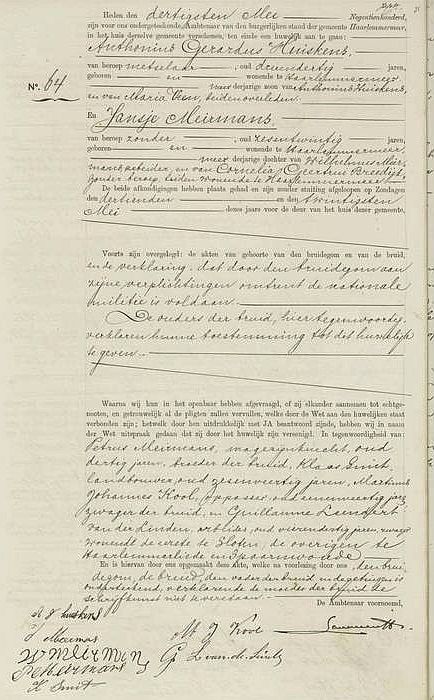 Heden den dertigsten Mei Negentienhonderd,
zijn voor ons ondergeteekende Ambtenaar van den burgerlijken stand der gemeente Haarlemmermeer,
in het huis derzelve gemeente verschenen, ten einde een huwelijk aan te gaan:
Anthonius Gerardus Huiskens,
van beroep metselaar, oud drieendertig jaren,
geboren en wonende te Haarlemmermeer
No. 64 meerderjarige zoon van Anthonius Huiskens,
en van Maria Veen, beiden overleden.
En Jansje Meirmans,
van beroep zonder, oud zesentwintig jaren,
geboren en wonende te Haarlemmermeer,
meerderjarige dochter van Wilhelmus Meir-
mans, arbeider, en van Cornelia Geertrui Breedijk,
zonder beroep, beiden wonende te Haarlemmermeer
De beide afkondigingen hebben plaats gehad en zijn zonder stuiting afgeloopen op Zondagen
den dertienden en den twintigsten
Mei dezes jaars voor de deur van het huis dezer gemeente.
Voorts zijn overgelegd: de akten van geboorte van den bruidegom en van de bruid,
en de verklaring, dat door den bruidegom aan
zijne verplichtingen omtrent de nationale
militie is voldaan.
De ouders der bruid, hier tegenwoordig,
verklaren hunne toestemming tot dit huwelijk
te geven.
Waarna wij hun in het openbaar hebben afgevraagd, of zij elkander aannemen tot echtge-
nooten, en getrouwelijk al de pligten zullen vervullen, welke door de Wet aan den huwelijken staat
verbonden zijn; hetwelk door hen uitdrukkelijk met JA beantwoord zijnde, hebben wij in naam
der Wet uitspraak gedaan dat zij door het huwelijk zijn vereenigd. In tegenwoordigheid van:
Petrus Meirmans, wagenknecht, oud
dertig jaren, broeder der bruid, Klaas Smit,
landbouwer, oud zesenveertig jaren, Martinus
Johannes Kool, oud eenenveertig jaren,
zwager der bruid, en Guillaume Leendert
van der Linden, arbeider, oud vierendertig jaren,
wonende de eerste te Sloten, de overigen te
Haarlemmerliede en Spaarnwoude
En is hiervan door ons opgemaakt deze Akte, welke na voorlezing door ons, den brui-
degom, de bruid, den vader der bruid en de getuigen is
onderteekend, verklarende de moeder der bruid de
schrijfkunst niet te verstaan.
De Ambtenaar voornoemd,
A G Huiskens
J Meermas
W Meirmen
P Meermans
K Smit
M J Kool
G L van der Linden